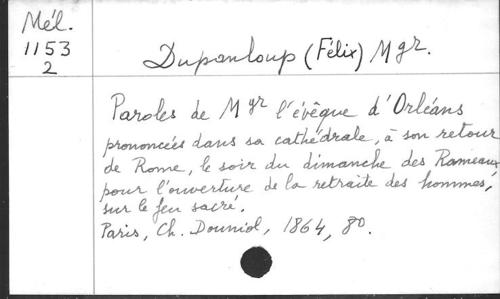 Mél.
1153
2
Dupanloup (Félix) Mgr.
Paroles de Mgr l'évêque d'Orléans
prononcées dans sa cathédrale, à son retour
de Rome, le soir du dimanche des Rameaux
pour l'ouverture de la retraite des hommes,
sur le feu sacré.
Paris, Ch. Douniol, 1864, 8º.